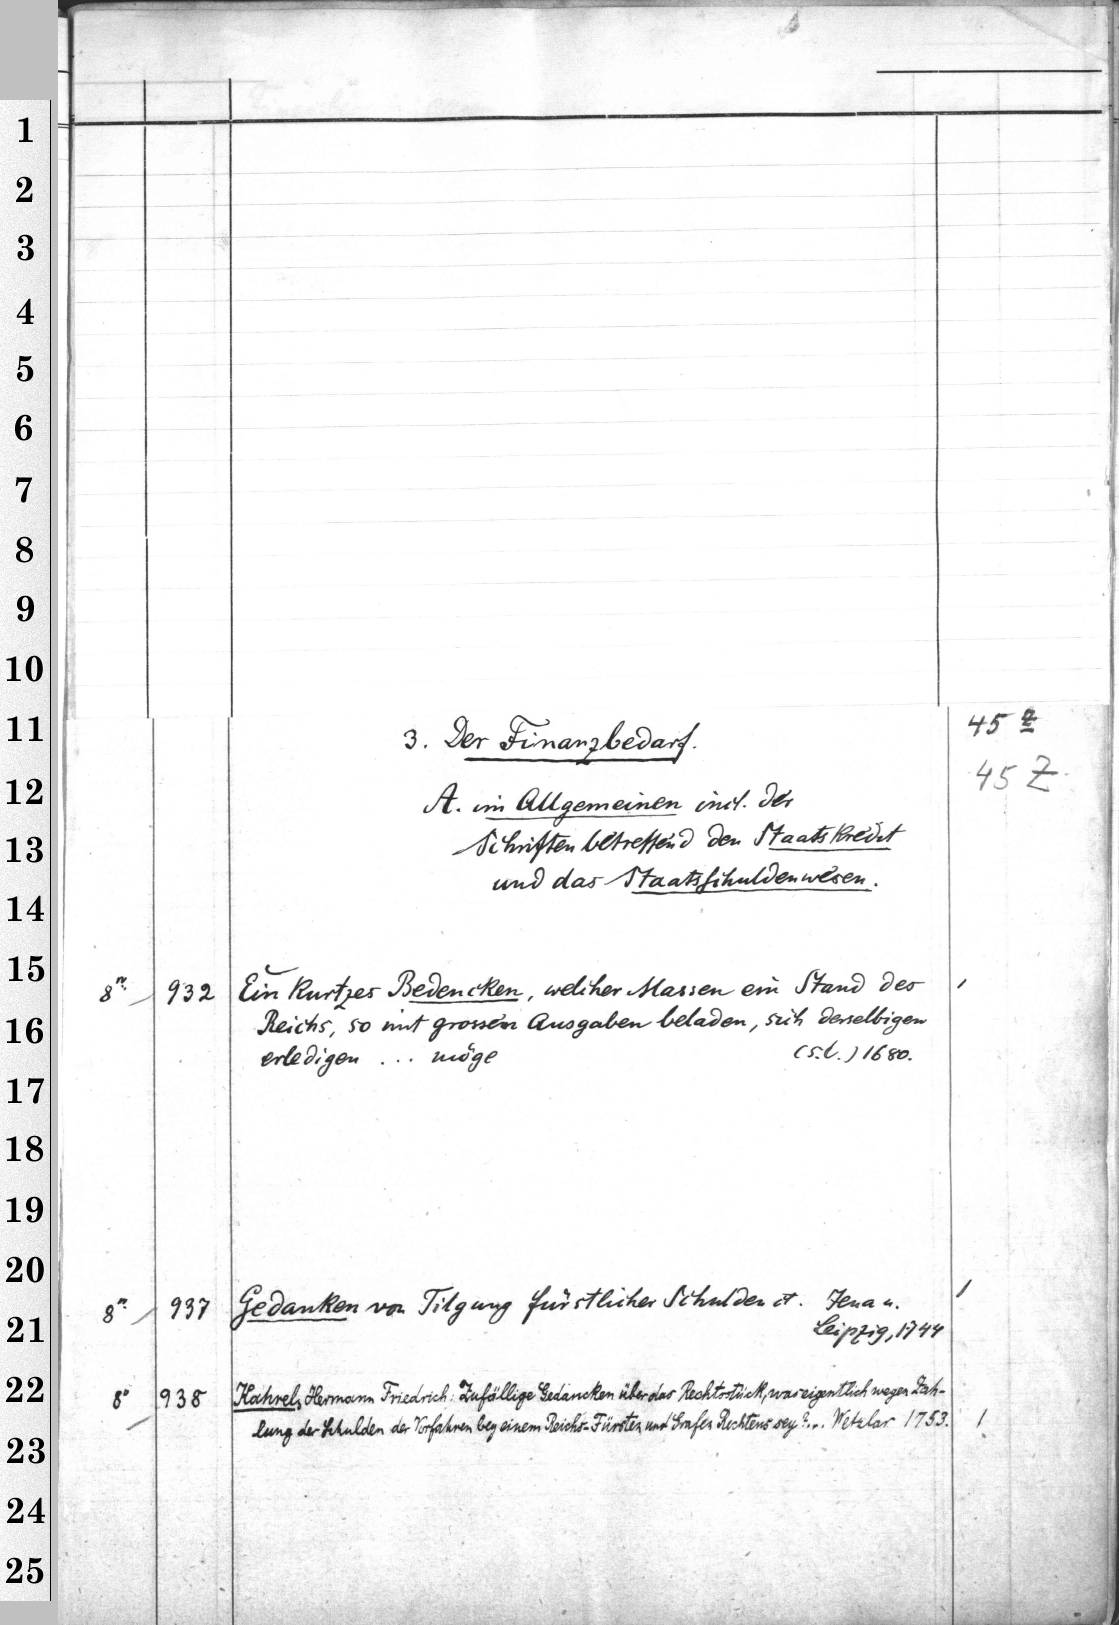 1
2
3
4
5
6
7
8
9
10
11
12
13
14
15
16
17
18
19
20
21
22
23
24
25
3. Der Finanzbedarf.
45 Z
45 Z
A. im Allgemeinen incl. der
Schriften betreffend den Staatskredit
und das Staatsschuldenwesen.
8° 932 Ein kurtzes Bedencken, welcher Massen ein Stand des
Reichs, so mit grossen Ausgaben beladen, sich derselbigen
erledigen ... möge (s.l.) 1680.
8° 937 Gedanken von Tilgung fürstlicher Schulden et. Jena u.
Leipzig, 1744
8° 938 Kahrel, Hermann Friedrich: Zufällige Gedancken über das Rechtsstück, was eigentlich wegen Zah-
lung der Schulden der Vorfahren bey einem Reichs-Fürsten und Grafen Rechtens sey?... Wetzlar 1753.